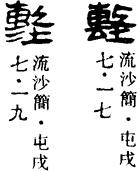 流沙簡·屯戍
七·一七
流沙簡·屯戍
七·一九